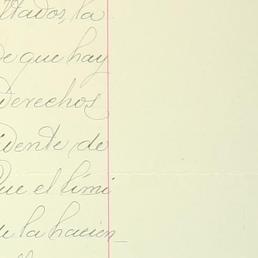 ltados, la
de que hay
derechos
idente de
que el limi
de la hacien_